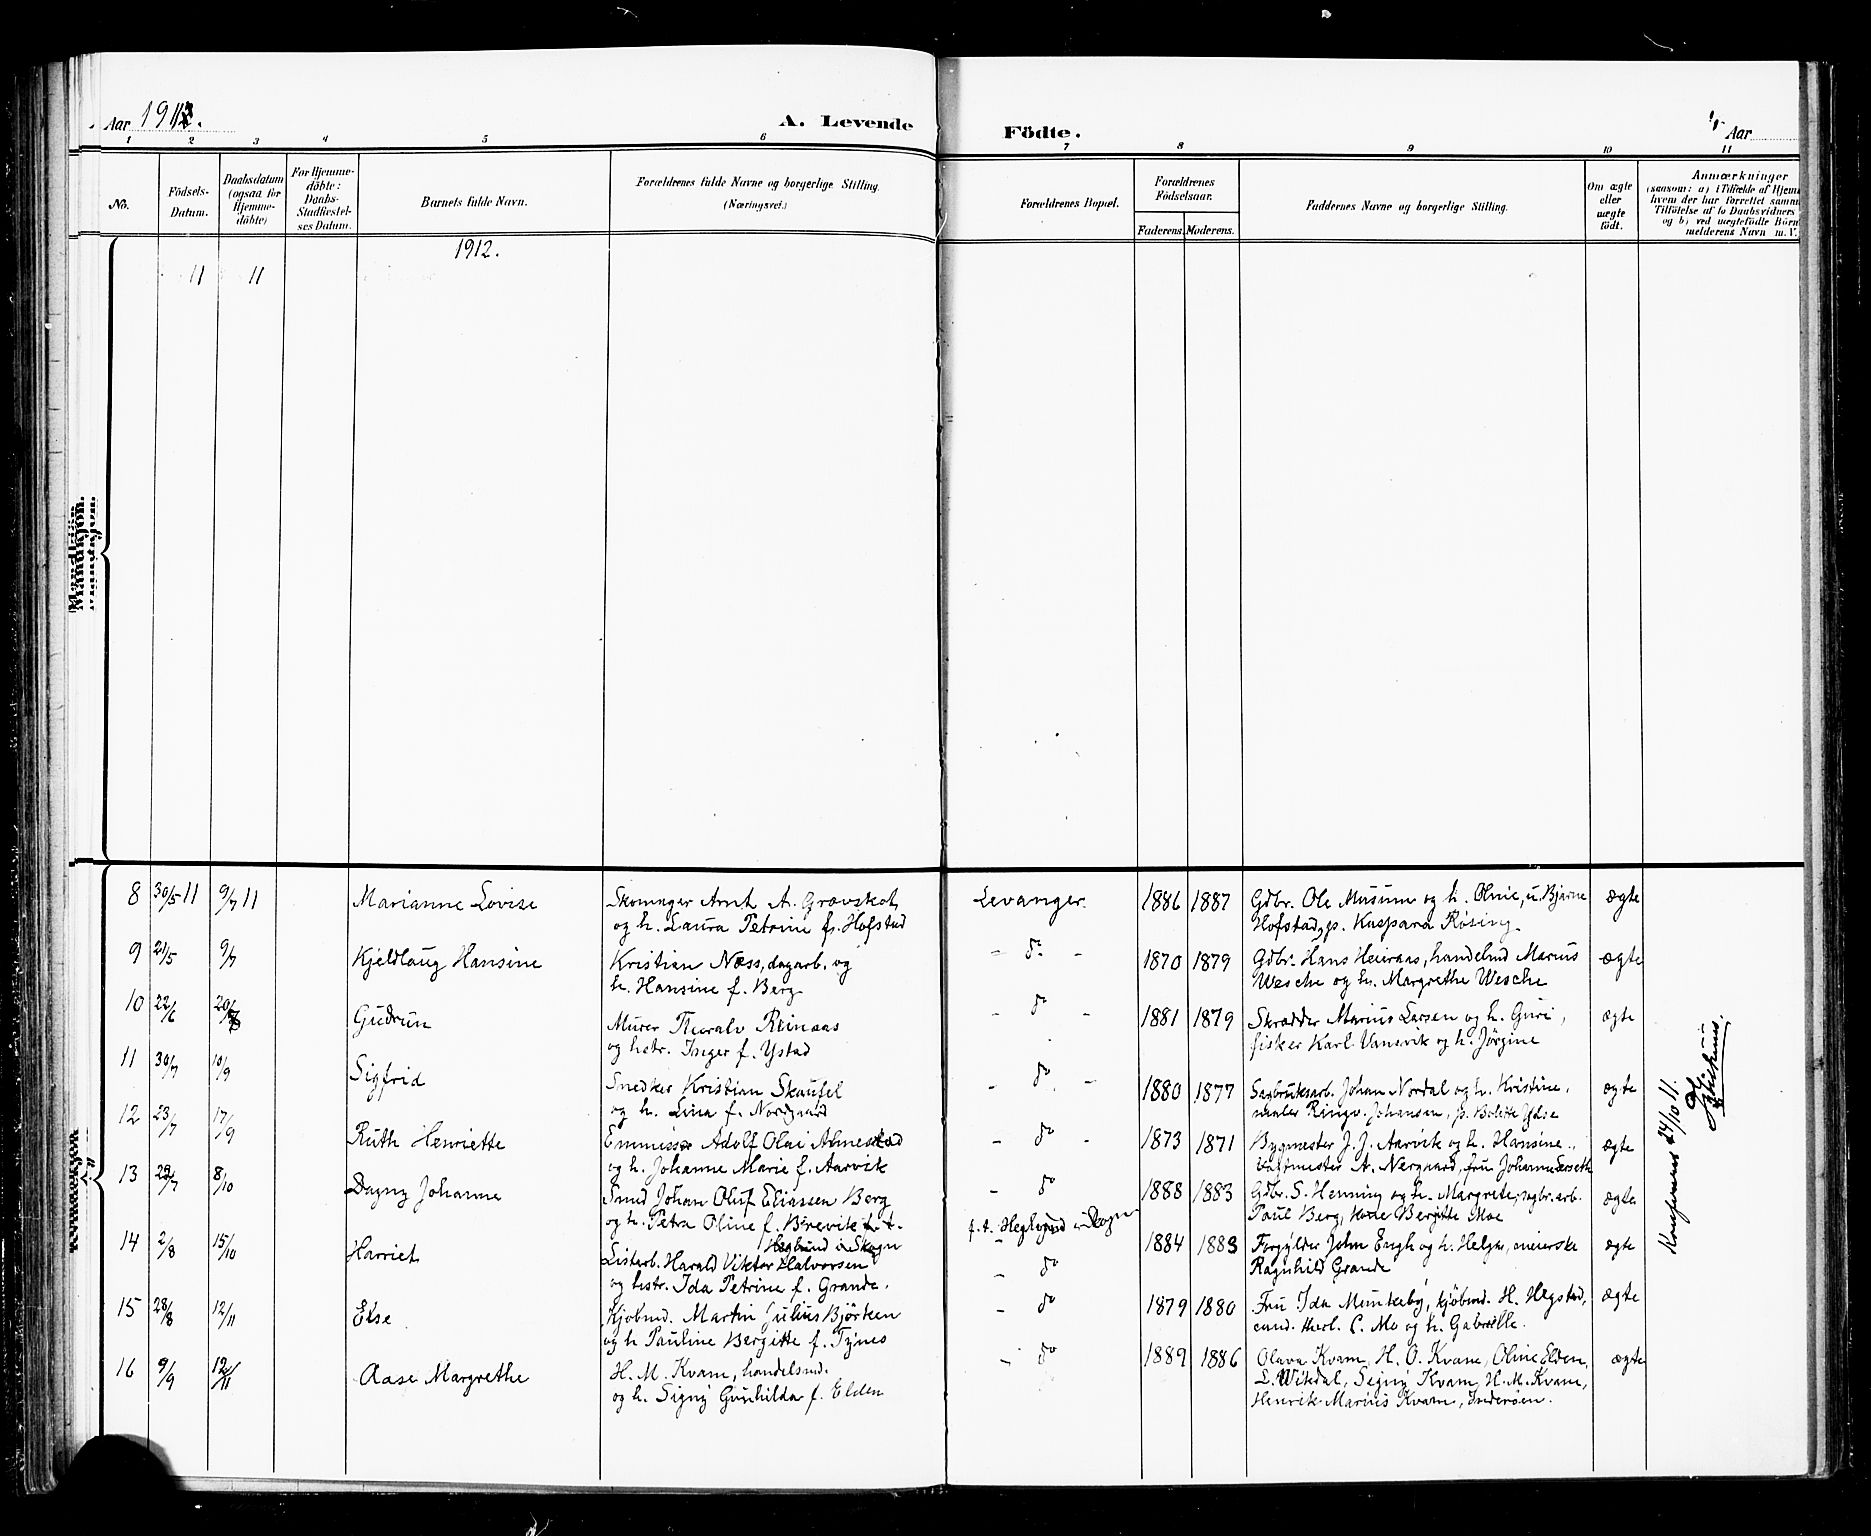 Aar 1912. A. Levende Födte. Aar
1 2 3 4 5 6 7 8 9 10 11
No. Födsels-Datum. Daabsdatum (ogsaa for Hjemme-döbte) For Hjemme-döbte: Daabs-Stadfæstel-ses Datum. Barnets fulde Navn. Forældrenes fulde Navne og borgerlige Stilling. (Næringsvei.) Forældrenes Bopæl. Forældrenes Födselsaar. Faderens. Moderens. Faddernes Navne og borgerlige Stilling. Om ægte eller uægte födt. Anmærkninger
(saasom: a) i Tilfælde af Hjem
hvem der har forrettet samm
Tilföielse af to Daabsvidners
og b) ved uægtefödte Börn
melderens Navn m. V.
1912.
11 11
Mandkjön.
8 30/5 11 9/7 11 Marianne Lovise Skomager Arnt A. Grævskot Levanger. 1886 1887 Gdbr. Ole Musum og h. Oline, u. Bjarne ægte
og h. Laura Petrine f. Hofstad Hofstad, p. Kaspara Røsing.
9 21/5 9/7 Kjeldlaug Hansine Kristian Næss, dagarb. og - do - 1870 1879 Gdbr. Hans Heieraas, handelsmd Marius ægte
h. Hansine f. Berg Wesche og h. Margrethe Wesche
10 22/6 20/8 Gudrun Murer Thoralv Reinaas - do - 1881 1879 Skrædder Marius Larsen og h. Guri, ægte
og hstr. Inger f. Ystad fisker Karl Vansvik og h. Jørgine
11 30/7 10/9 Sigfrid Snedker Kristian Skaufel - do - 1880 1877 Sagbruksarb. Johan Nordal og h. Kristine, ægte
og h. Lina f. Nordgaard maler Ringv. Johansen, p. Bolette Ydse
12 23/7 17/9 Ruth Henriette Emmissær Adolf Olai Almestad - do - 1873 1871 Bygmester J. J. Aarvik og h. Hansine, ægte
og h. Johanne Marie f. Aarvik A. Nergaard, fru Johanne
13 29/7 8/10 Dagny Johanne Smed Johan Oluf Eliassen Berg - do 1888 1883 Gdbr. S. Henning og h. Margrete, sagbr. arb. ægte
og h. Petra Oline f. Brevik f. t. f. t. Heglund i Skogn Paul Berg, Bergitte Moe
Heglund i Skogn
14 2/8 15/10 Harriet Listarb. Harald Viktor Halvorsen - do 1884 1883 Forgylder John Engh og h. Helga, meierske ægte
og hstr. Ida Petrine f. Grande. Ragnhild Grande
15 28/8 12/11 Else Kjøbmd. Martin Julius Björken - do 1879 1880 Fru Ida Munkeby, kjøbmd. H. Hegstad, ægte
og h Pauline Bergitte f. Tynes cand. theol. C. Mo og h. Gabrielle.
16 9/9 12/11 Aase Margrethe H. M. Kvam, handelsmd. - do 1889 1886 Olava Kvam, H. O. Kvam, Oline Elden, ægte
og h. Signy Gunhilda f. Elden L. Wikdal, Signy Kvam, H. M. Kvam,
Henrik Marius Kvam, Inderøen.
Konfereret 24/10 11.